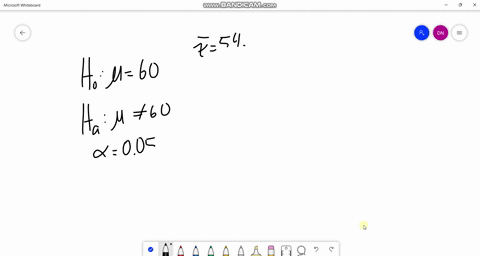 Microsoft Whiteboard
WWW.BANDICAM.COM
DN
x̄ = 54.
H₀: μ = 60
Hₐ: μ ≠ 60
α = 0.05